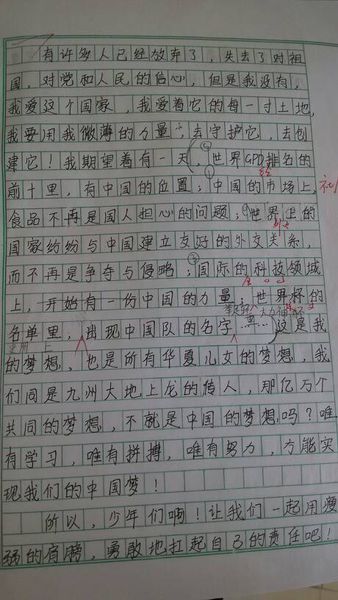 有许多人已经放弃了，失去了对祖
国，对党和人民的信心，但是我没有，
我爱这个国家，我爱着它的每一寸土地，
我要用我微薄的力量，去守护它，去创
建它！我期望着有一天，世界GPD排名的
前十里，有中国的位置；中国的市场上，
食品不再是国人担心的问题；世界上的
国家纷纷与中国建立友好的外交关系，
而不再是争夺与侵略；国际的科技领域
上，开始有一份中国的力量；世界杯的
名单里，出现中国队的名字……这是我
的梦想，也是所有华夏儿女的梦想，我
们同是九州大地上龙的传人，那亿万个
共同的梦想，不就是中国的梦想吗？唯
有学习，唯有拼搏，唯有努力，方能实
现我们的中国梦！
所以，少年们啊！让我们一起用瘦
弱的肩膀，勇敢地扛起自己的责任吧！